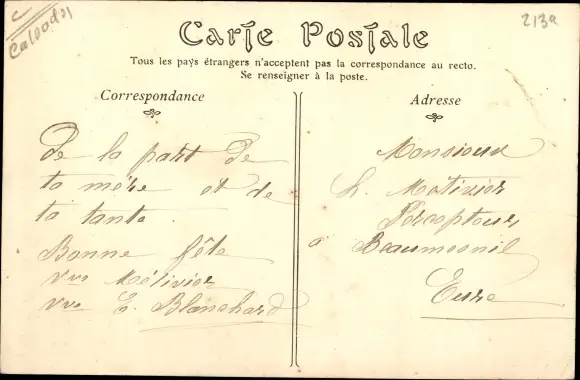 Calvados
213a
Carte Postale
Tous les pays étrangers n'acceptent pas la correspondance au recto.
Se renseigner à la poste.
Correspondance
De la part de
ta mère et de
ta tante.
Bonne fête
Vve Métivier
Vve E. Blanchard
Adresse
Monsieur
L. Métivier
Percepteur
à Beaumesnil
Eure